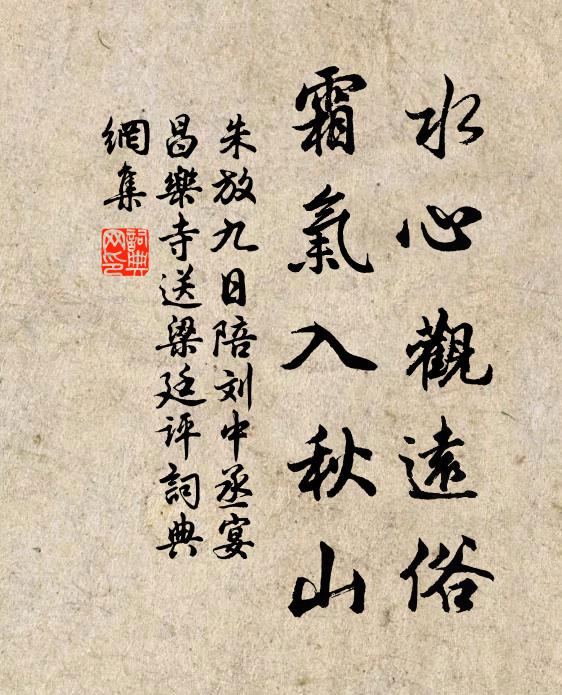 水心觀遠俗
霜氣入秋山
朱放九日陪刘中丞宴
昌樂寺送梁廷评詞典
網集
詞典
网印